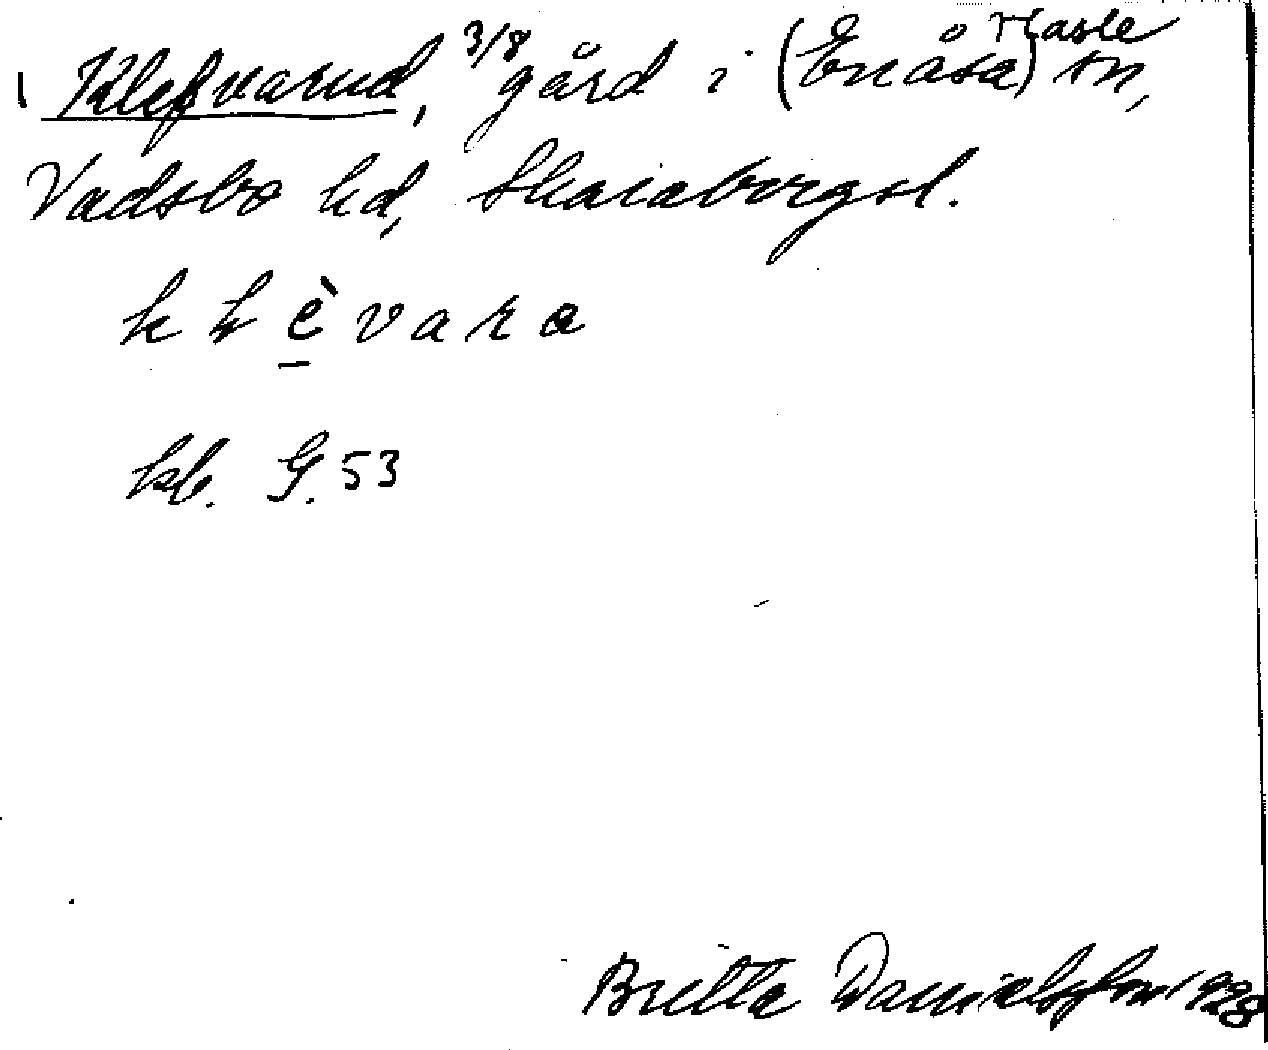 1 Klefvarud, 3/8 gård i (Enåsa) Hasle sn,
Vadsbo hd, Skaraborgsl.
k l è v a r a
kb. G. 53
Britta Danielsson 1928